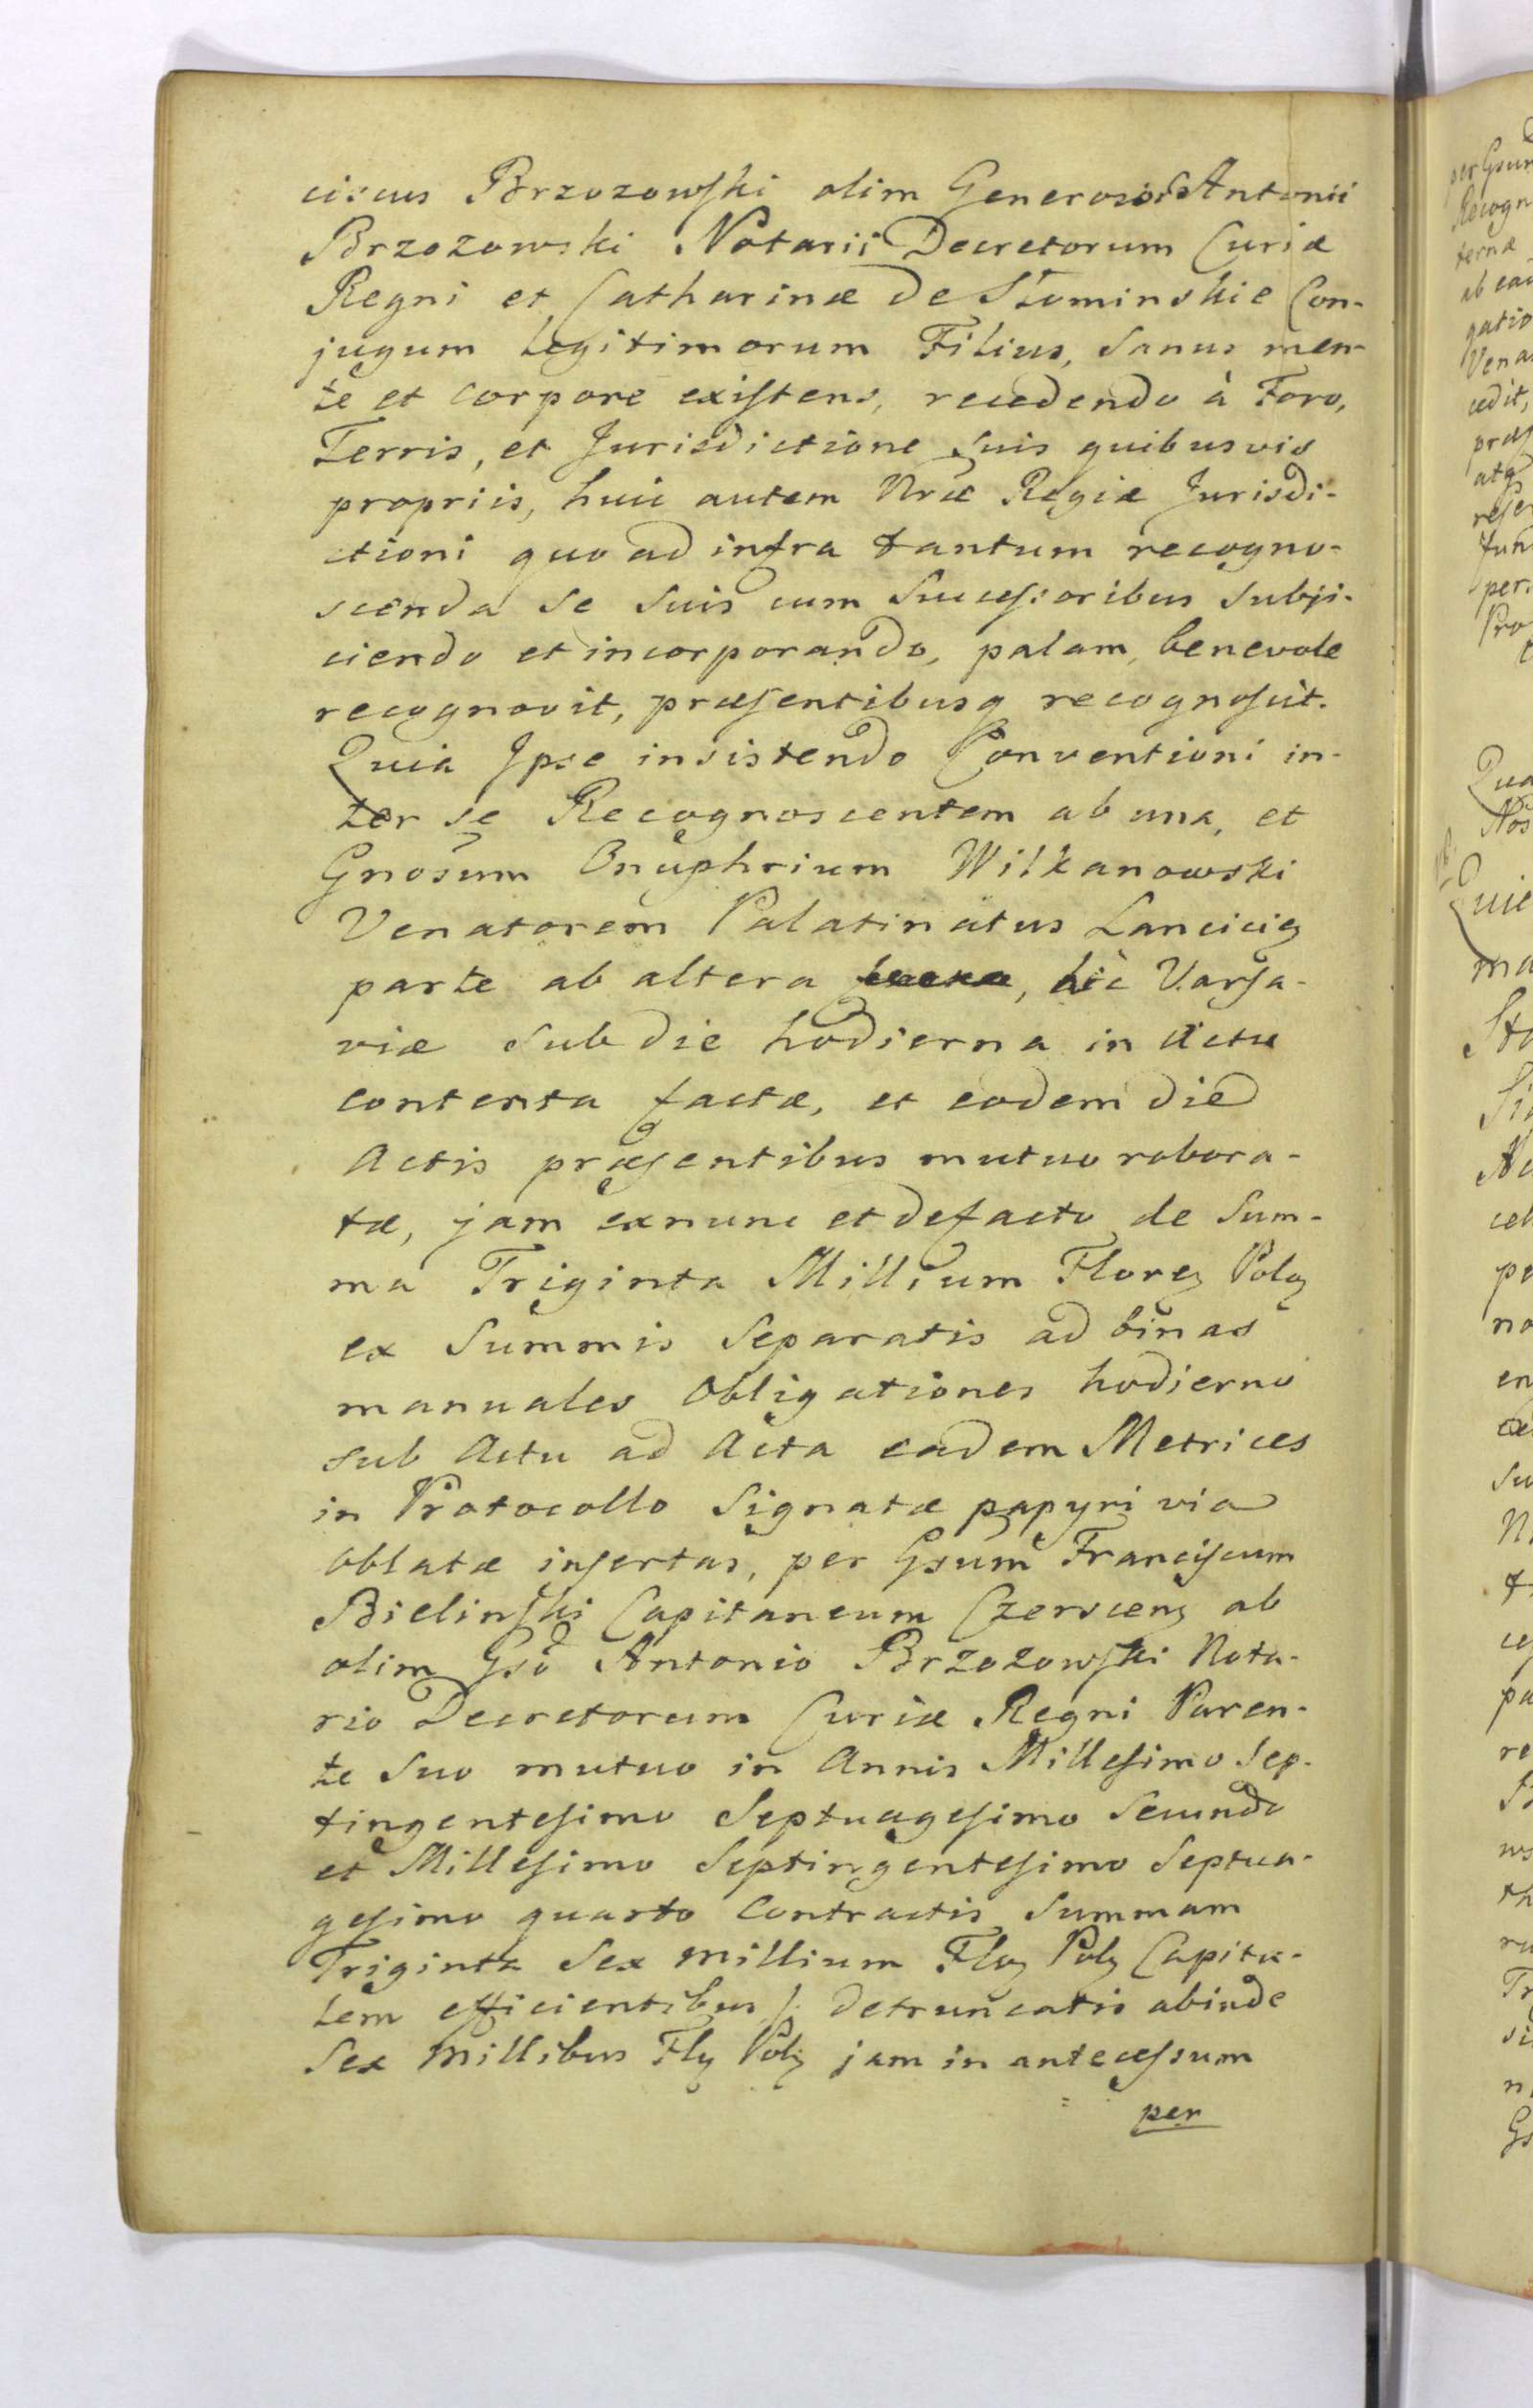 ciscus Brzozowski olim Generosor Antonii
Brzozowski Notarii Decretorum Curiæ
Regni et Catharinæ de Słominskie Con-
jugum Legitimorum Filius, Sanus men-
te et corpore existens, recedendo à Foro,
Terris, et Jurisdictione suis quibusvis
propriis, huic autem Nræ Regiæ Jurisdi-
ctioni quo ad infra tantum recogno-
scenda se suis cum Successoribus subji-
ciendo et incorporando, palam, benevole
recognovit, præsentibusq recognoscit.
Quia Ipse insistendo Conventioni in-
ter se Recognoscentem ab una, et
Gnosum Onuphrium Wilkanowski
Venatorem Palatinatus Lancicię
parte ab altera, hic Varsa-
viæ sub die hodierna in Actu
contenta factæ, et eodem die
Actis præsentibus mutuo robora-
tæ, jam exnunc et defacto de Sum-
ma Triginta Millium Floreȝ Polȝ
ex Summis Separatis ad binas
manuales Obligationes hodierno
sub Actu ad Acta eadem Metrices
in Protocollo Signatæ papyri via
Oblatæ insertas, per Gsum Franciscum
Bielinski Capitaneum Czerscenȝ ab
olim Gso Antonio Brzozowski Nota-
rio Decretorum Curiæ Regni Paren-
te Suo mutuo in Annis Millesimo Sep-
tingentesimo Septuagesimo Secundo
et Millesimo Septingentesimo Septua-
gesimo quarto Contractis Summam
Triginta Sex Millium Floȝ Polȝ Capita-
lem efficientibus /: detruncatis abinde
Sex Millibus Flȝ Polȝ jam in antecessum
per